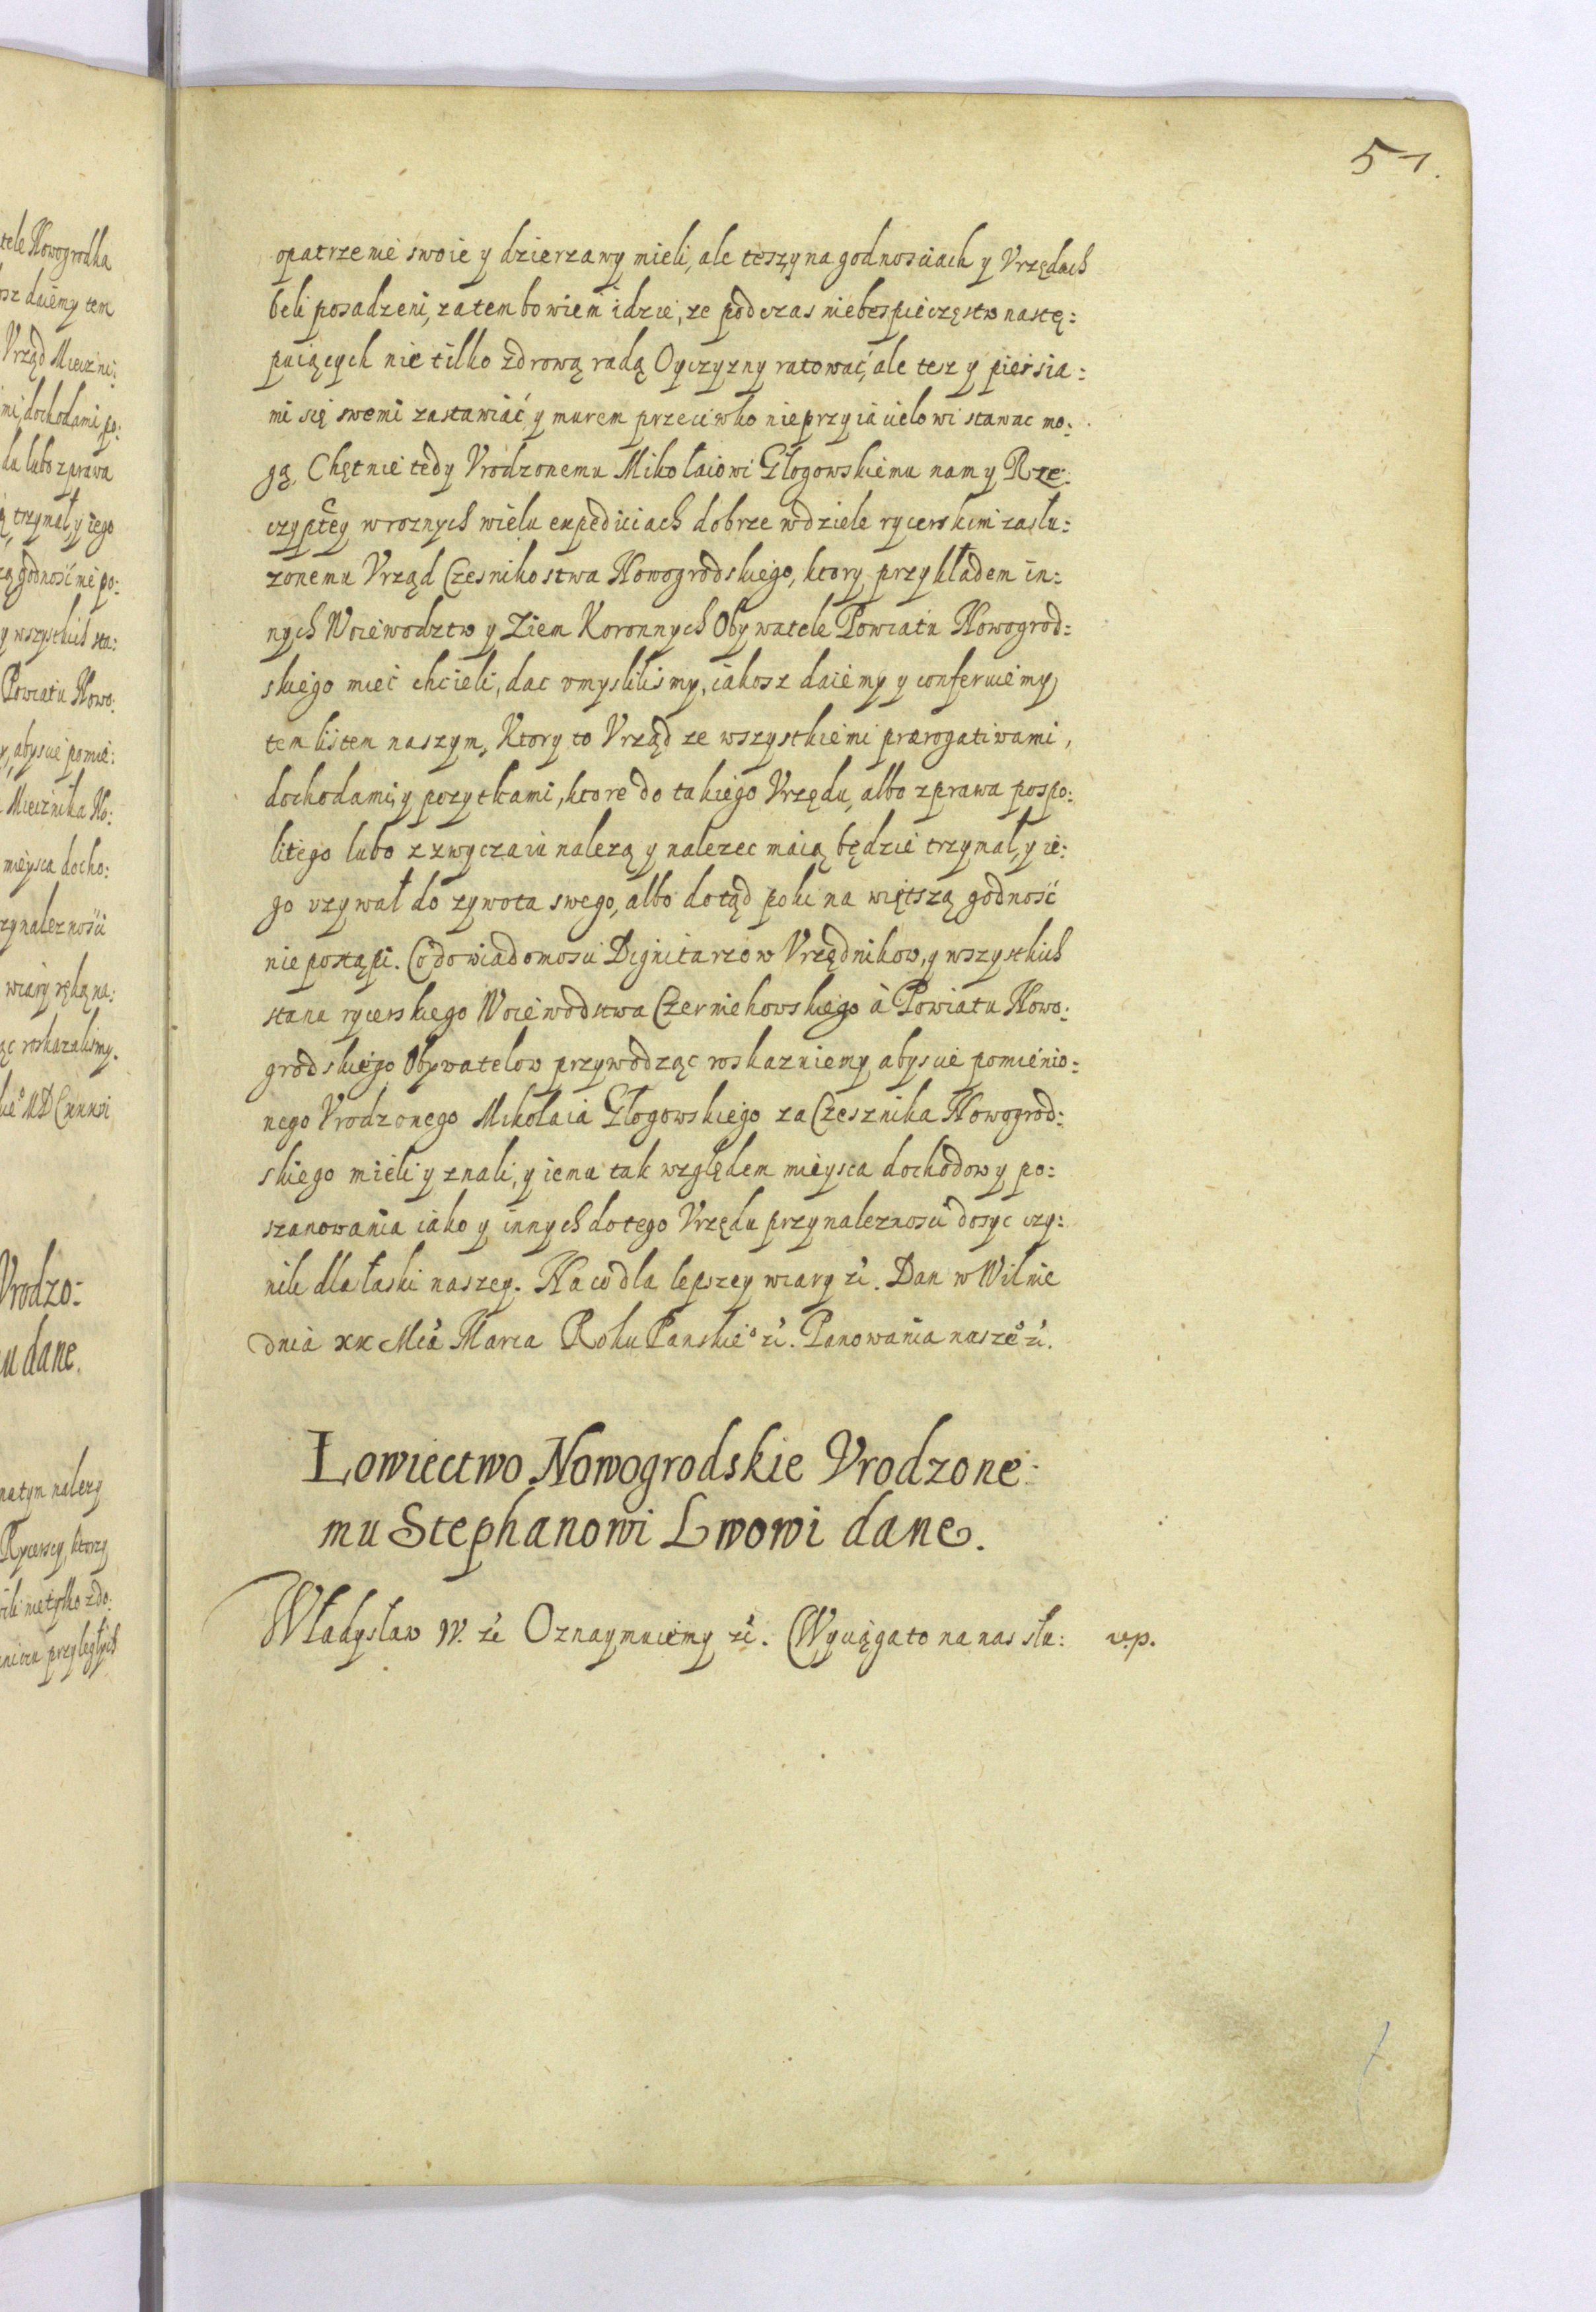 51.
opatrzenie swoie y dzierzawy mieli, ale tesz y na godnosciach y Vrzędach
beli posadzeni, zatem bowiem idzie, ze podczas niebespieczęstw nastę:
puiących nie tilko zdrową radą Oyczyzny ratować, ale tez y piersia:
mi się swemi zastawiać y murem przeciwko nieprzyiacielowi stawac mo:
gą, Chętnie tedy Vrodzonemu Mikołaiowi Głogowskiemu nam y Rze:
czyptey w roznych wielu expediciach dobrze w dziele rycerskim zasłu:
zonemu Vrząd Czesnikostwa Nowogrodskiego, ktory przykładem in:
nych Woiewodztw y Ziem Koronnych Obywatele Powiatu Nowogrod:
skiego mieć chcieli, dac vmyslilismy, iakosz daiemy y conferuiemy
tem listem naszym, Ktory to Vrząd ze wszystkiemi prærogatiwami,
dochodami, y pozytkami, ktore do takiego Vrzędu, albo z prawa pospo:
litego lubo z zwyczaiu nalezą y nalezec maią będzie trzymał, y ie:
go vzywał do zywota swego, albo dotąd poki na więtszą godność
nie postąpi. Co do wiadomosci Dignitarzow Vrzędnikow, y wszystkich
stanu rycerskiego Woiewodstwa Czerniehowskiego à Powiatu Nowo:
grodskiego Obywatelow przywodząc roskazuiemy abyscie pomienio:
nego Vrodzonego Mikołaia Głogowskiego za Czesznika Nowogrod:
skiego mieli y znali, y iemu tak względem mieysca dochodow y po:
szanowania iako y innych do tego Vrzędu przynaleznosci dosyc czy:
nili dla łaski naszey. Na co dla lepszey wiary ẛc. Dan w Wilnie
dnia xx Mca Marca Roku Panskieº ẛc. Panowania naszeº ẛc.
Łowiectwo Nowogrodskie Vrodzone:
mu Stephanowi Lwowi dane.
Władysław IV. ẛc Oznaymuiemy ẛc. (Wyciąga to na nas słu: v.p.
tele Nowogrodka
osz daiemy tem
Vrząd Mieczni:
mi, dochodami, po:
du lubo z prawa
trzymał, y iego
godność nie po:
y wszystkich sta:
Powiatu Nowo:
abyscie pomie:
Miecznika No:
mieysca docho:
zynaleznosci
wiary ręką na:
roskazalismy.
Vrodzo:
dane.
na tym nalezy
Rycerscy, ktorzy
nie tylko zdo:
przyległych